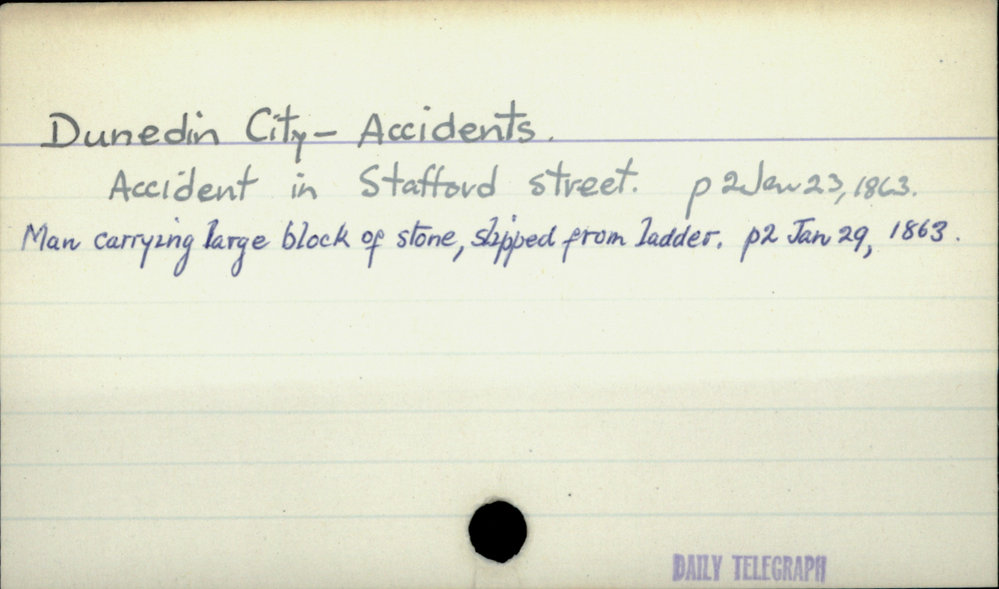 Dunedin City - Accidents.
Accident in Stafford street. p2 Jan 23, 1863.
Man carrying large block of stone, slipped from ladder. p2 Jan 29, 1863.
DAILY TELEGRAPH